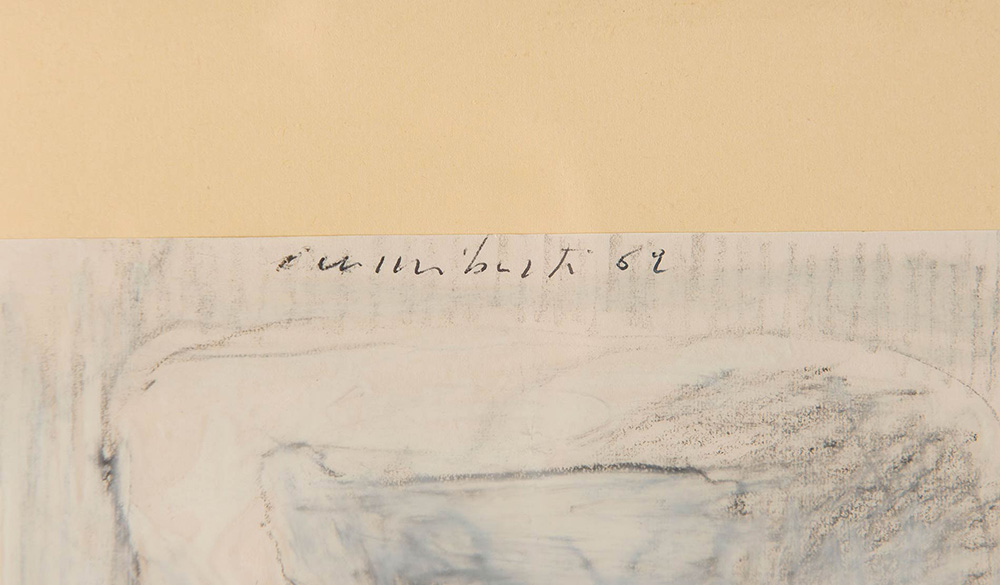 cuniberti 62